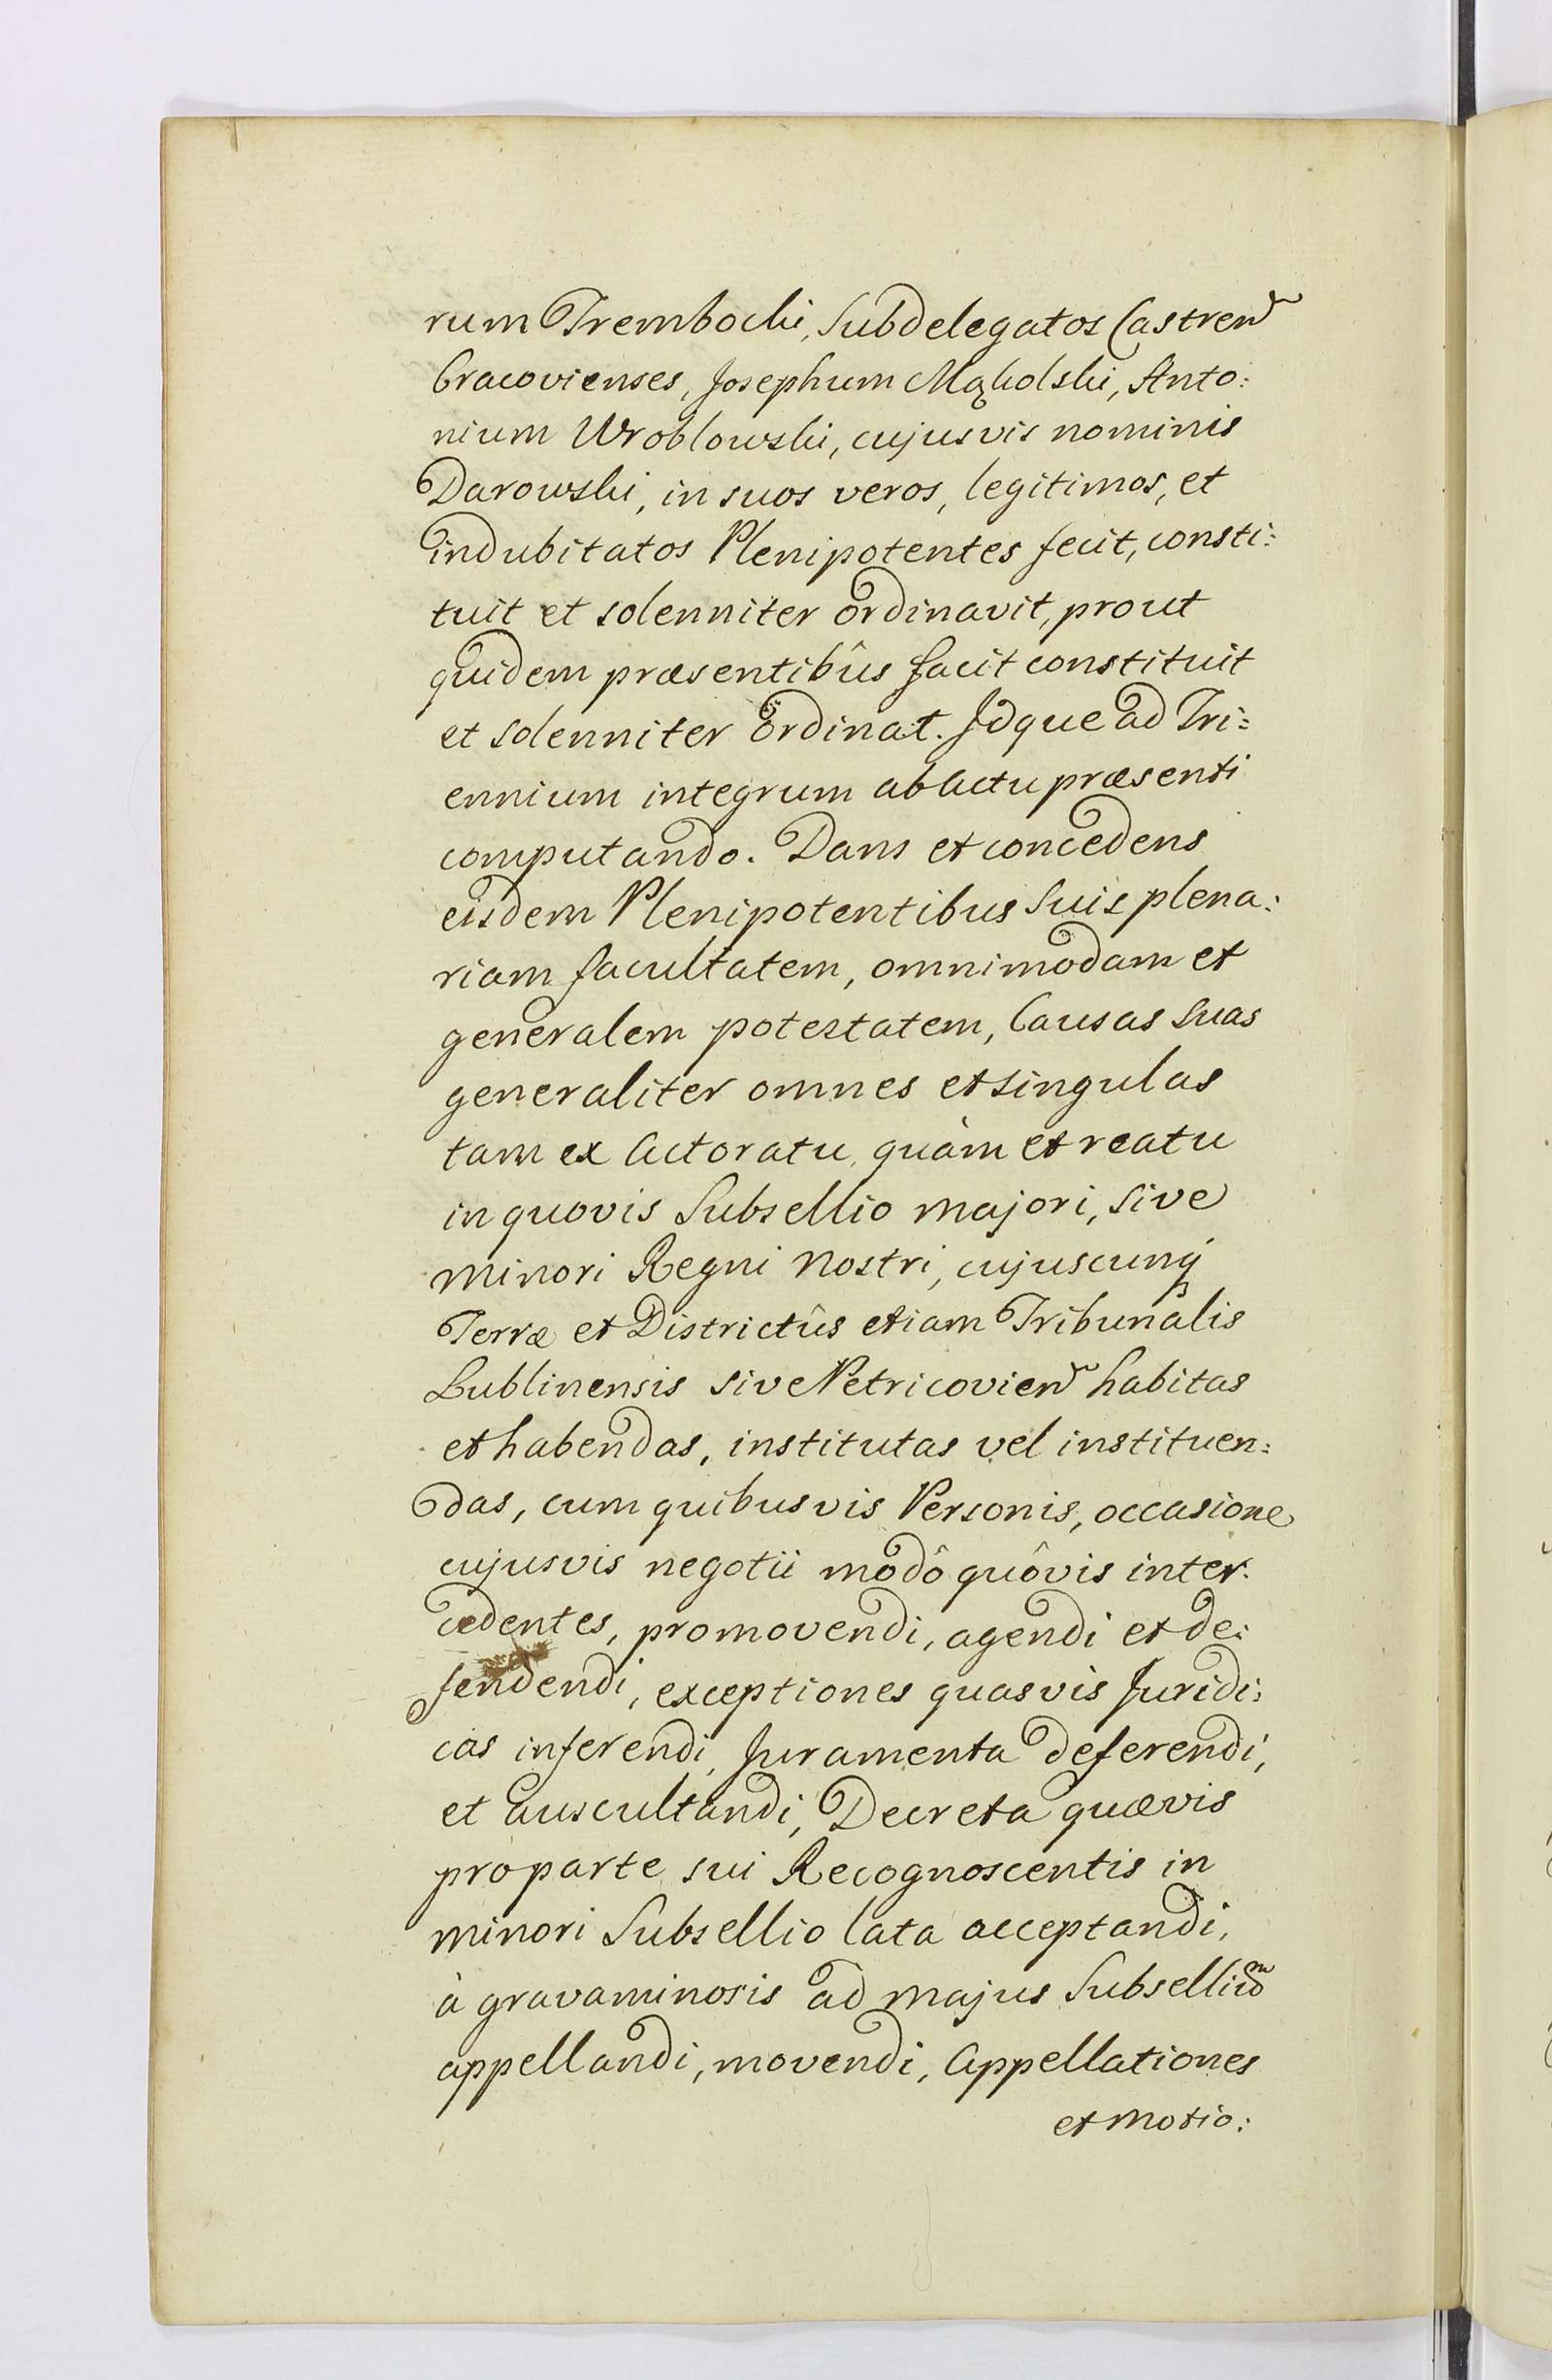 rum Trembocki, Subdelegatos Castren̄
Cracovienses, Josephum Mąkolski, Anto:
nium Wroblowski, cujusvis nominis
Darowski, in suos veros, legitimos, et
indubitatos Plenipotentes fecit, consti:
tuit et solenniter ordinavit, prout
quidem præsentibûs facit constituit
et solenniter ordinat. Idque ad Tri:
ennium integrum ab Actu præsenti
computando. Dans et concedens
eisdem Plenipotentibus Suis plena:
riam facultatem, omnimodam et
generalem potestatem, Causas Suas
generaliter omnes et singulas
tam ex Actoratu, quàm et reatu
in quovis Subsellio majori, sive
minori Regni Nostri, cujuscunqȝ
Terræ et Districtûs etiam Tribunalis
Lublinensis sive Petricovien̄ habitas
et habendas, institutas vel instituen:
das, cum quibusvis Personis, occasione
cujusvis negotii modô quôvis inter:
cedentes, promovendi, agendi et de:
fendendi, exceptiones quasvis Juridi:
cas inferendi, Juramenta deferendi,
et auscultandi, Decreta quævis
pro parte sui Recognoscentis in
minori Subsellio lata acceptandi,
à gravaminosis ad majus Subselliuᵐ
appellandi, movendi, Appellationes
et motio: